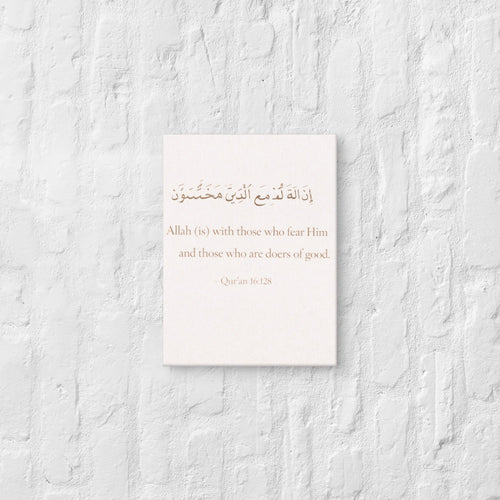 إن الة لمـ مع الذين مخسون
Allah (is) with those who fear Him
and those who are doers of good.
- Qur'an 16:128